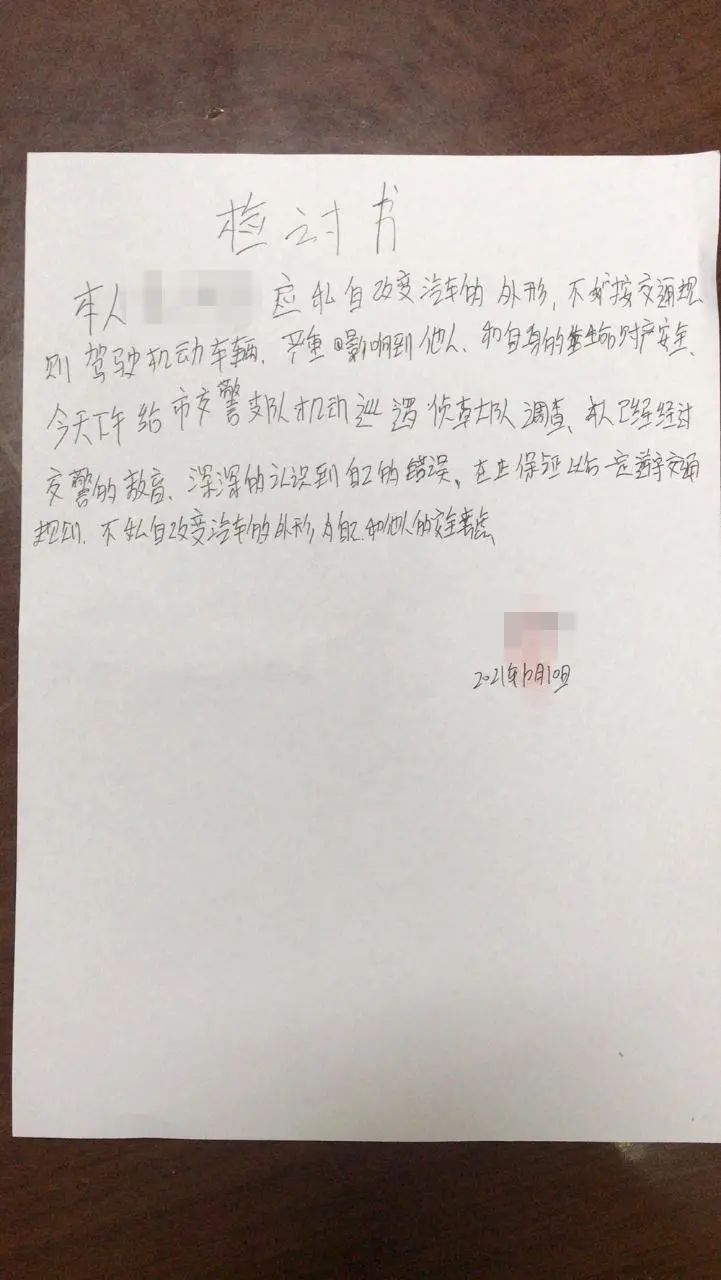 检讨书
本人 应私自改变汽车的外形，不按交通规
则驾驶机动车辆、严重影响到他人、和自身的生命财产安全、
今天下午给市交警支队机动巡逻侦查大队调查、本人已经经过
交警的教育、深深的认识到自己的错误。在上保证以后一定遵守交通
规则、不私自改变汽车的外形为自己和他人的安全考虑
2021年12月10日